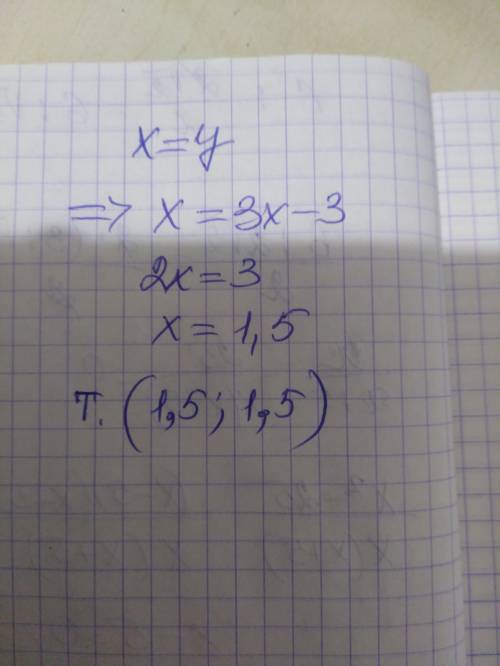 x=y
=> x=3x-3
2x=3
x=1,5
т. (1,5; 1,5)